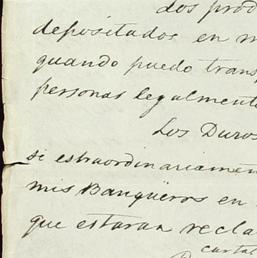 Los prod
depositados en m
quando puedo trans
personas legalmente
Los Duros
si estraordinariamen
mis Banqueros en
que estaran recla
cartal